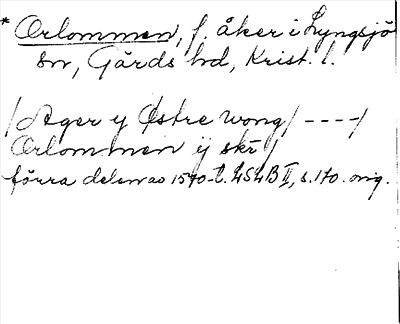 * Orlommen, f. åker i Lyngsjö
sn, Gärds hd, Krist. l.
/Ager y Østre wong/ ----/
Orlommen ij skr /
förra delen av 1570-t. LSLB II, s. 170. orig.